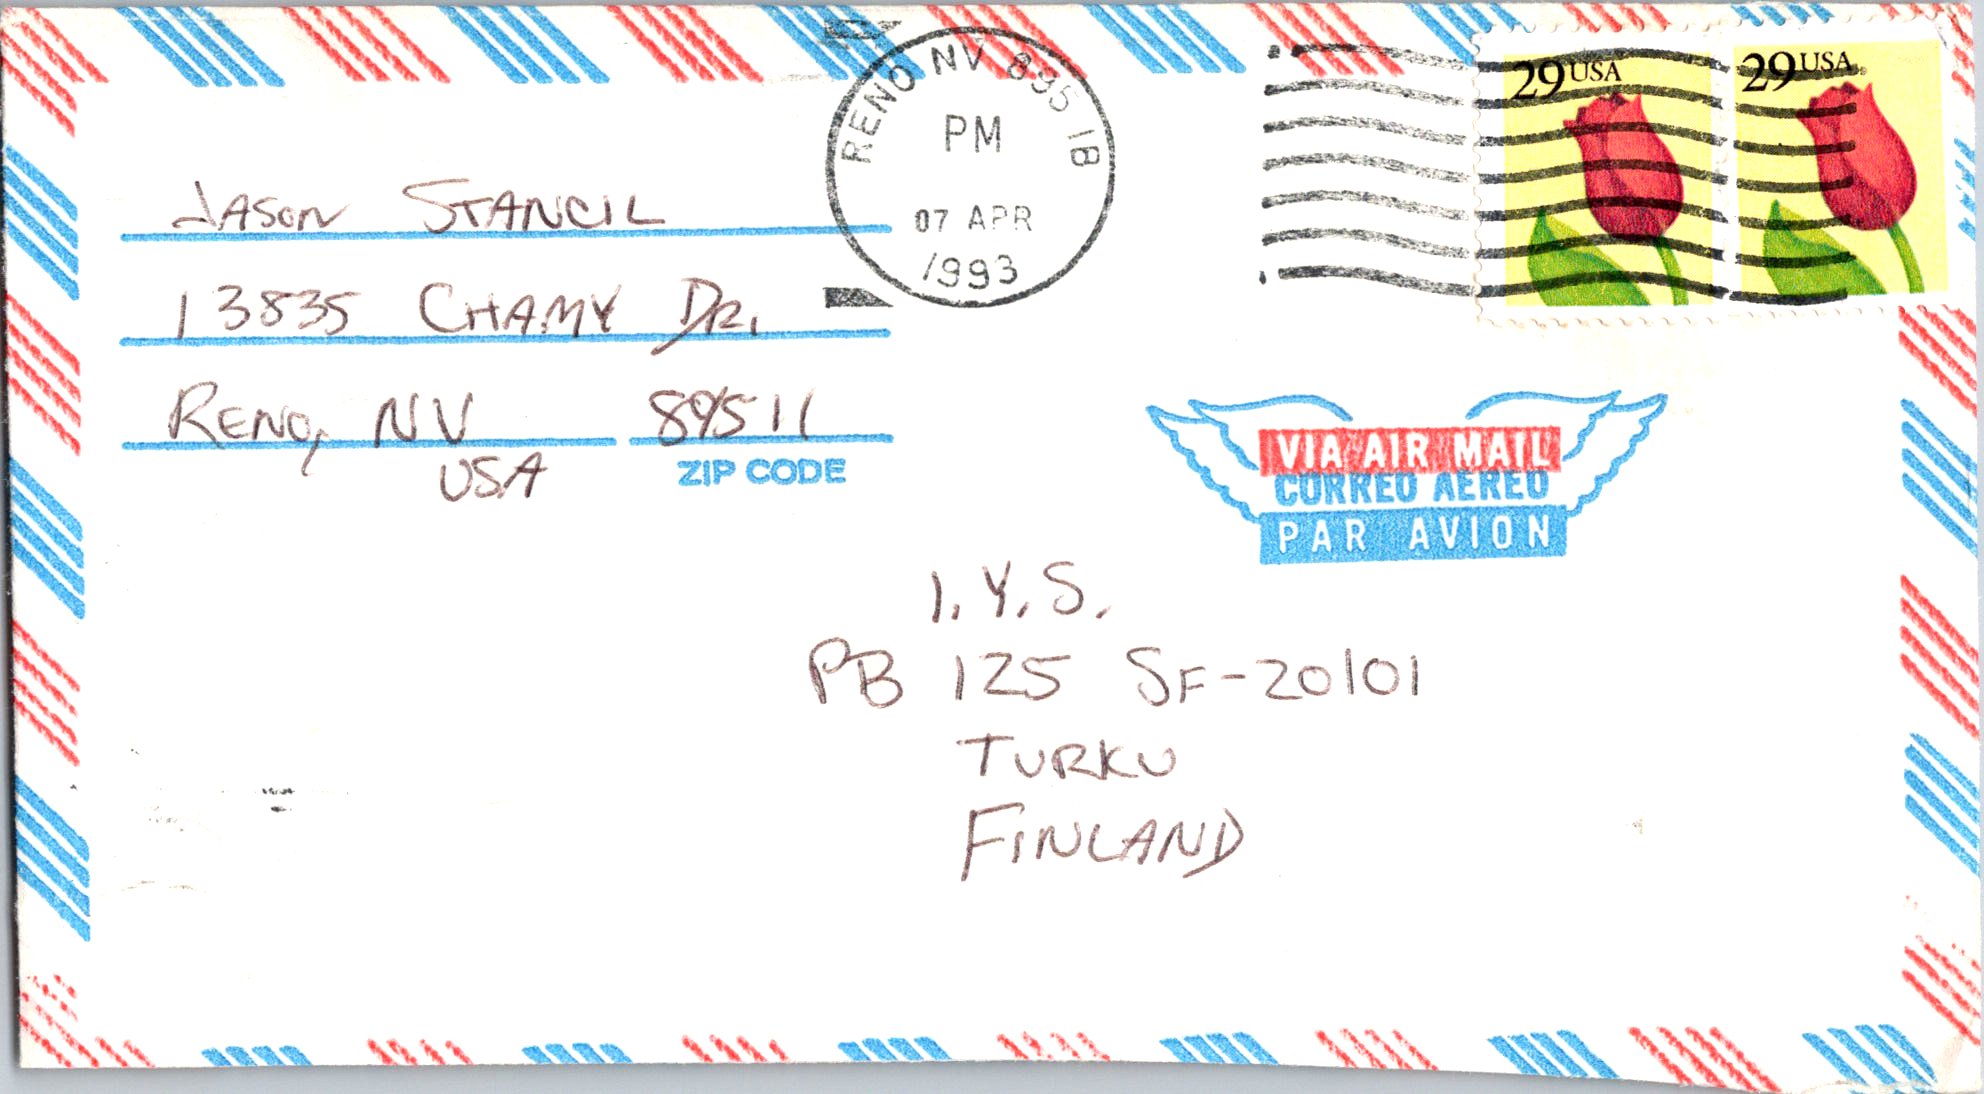 RENO NV 895 1B
PM
07 APR
1993
29 USA
29 USA
JASON STANCIL
13835 CHAMY DR.
RENO, NV 89511
USA
ZIP CODE
VIA AIR MAIL
CORREO AEREO
PAR AVION
I.Y.S.
PB 125 SF-20101
TURKU
FINLAND